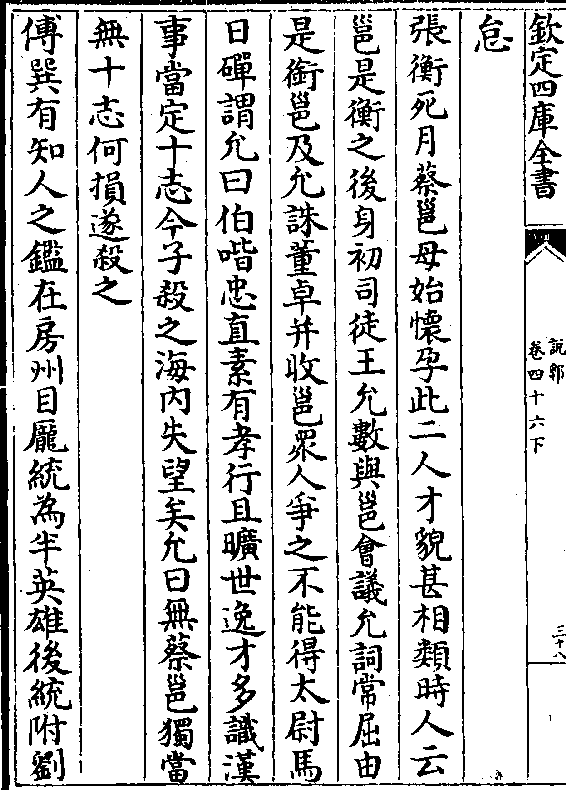 欽定四庫全書
說郛
卷四十六下
三十八
怠
張衡死月蔡邕母始懷孕此二人才貌甚相類時人云
邕是衡之後身初司徒王允數與邕會議允詞常屈由
是銜邕及允誅董卓并收邕眾人爭之不能得太尉馬
日磾謂允曰伯喈忠直素有孝行且曠世逸才多識漢
事當定十志今子殺之海內失望矣允曰無蔡邕獨當
無十志何損遂殺之
傅巽有知人之鑑在房州目龎統為半英雄後統附劉